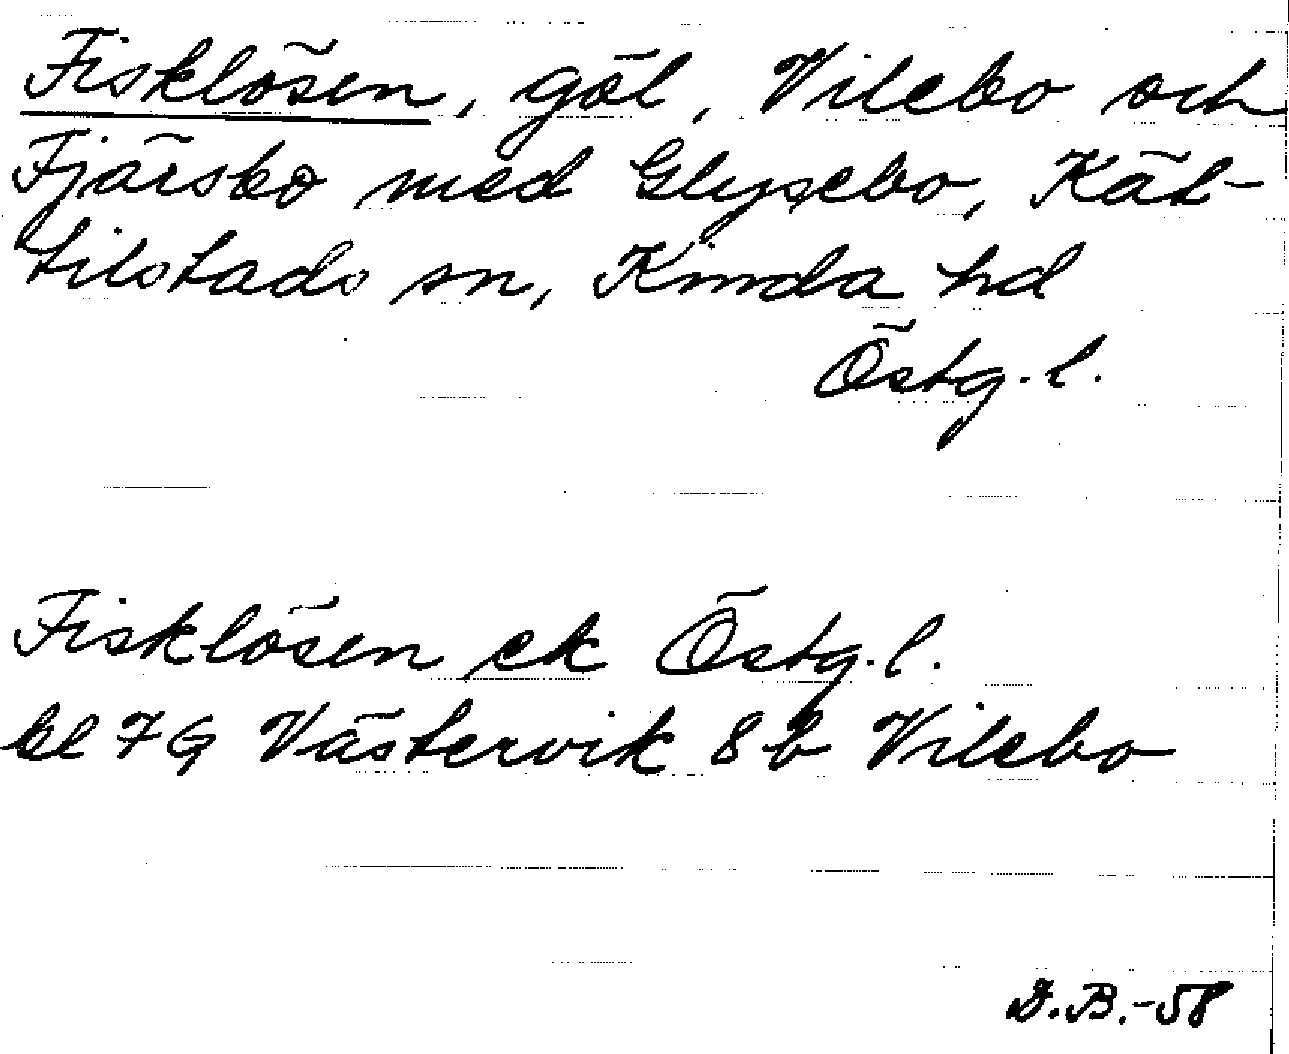 Fisklösen, göl, Vilebo och
Fjärsbo med Glysebo, Kät-
tilstads sn, Kinda hd
Östg. l.
Fisklösen ek Östg. l.
bl 7 G Västervik 8 b Vilebo
D.B.-58